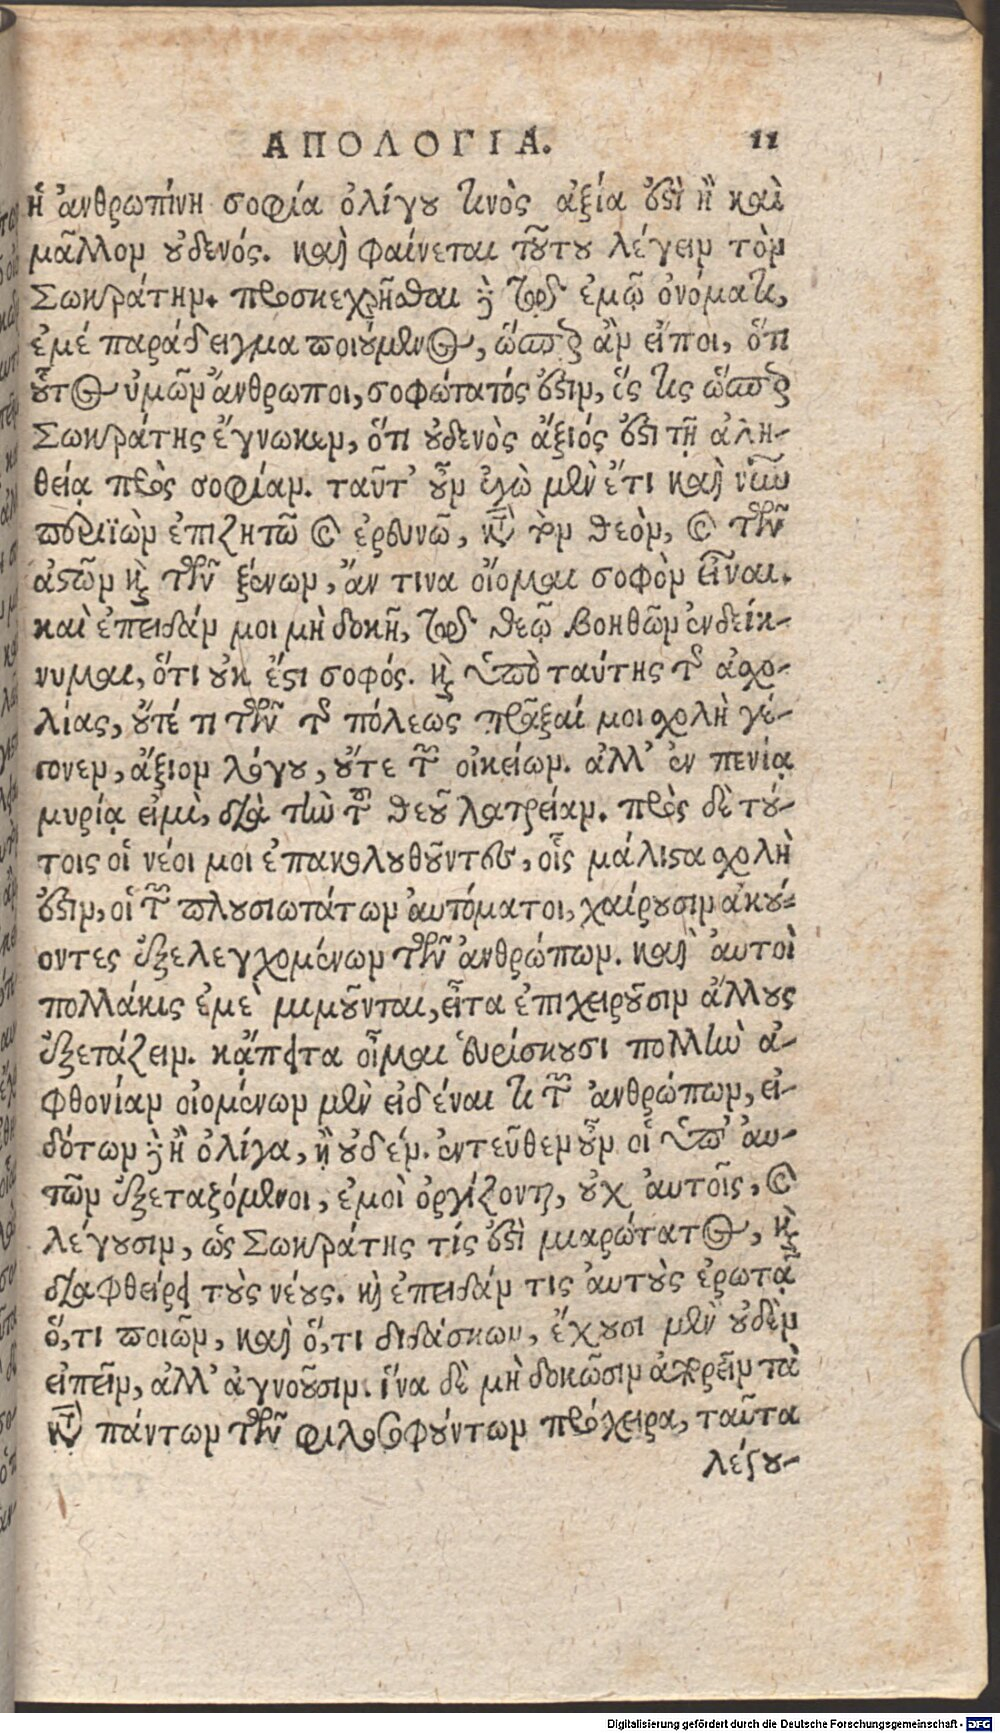 ΑΠΟΛΟΓΙΑ. 11
ἡ ἀνθρωπίνη σοφία ὀλίγου τινὸς ἀξία ἐστὶ ἢ καὶ
μᾶλλον οὐδενός. καὶ φαίνεται τοῦτου λέγειν τὸν
Σωκράτην. προσκεχρῆσθαι δὲ τῷ ἐμῷ ὀνόματι,
ἐμέ παράδειγμα ποιούμενος, ὥσπερ ἂν εἴποι, ὅτι
οὗτος ὑμῶν ἄνθρωποι, σοφώτατός ἐστιν, ὅς τις ὥσπερ
Σωκράτης ἔγνωκεν, ὅτι οὐδενὸς ἄξιός ἐστι τῇ ἀλη-
θείᾳ πρὸς σοφίαν. ταῦτ' οὖν ἐγὼ μὲν ἔτι καὶ νῦν
περιϊὼν ἐπιζητῶ καὶ ἐρευνῶ, κατὰ τὸν θεὸν, καὶ τῶν
ἀστῶν καὶ τῶν ξένων, ἄν τινα οἴομαι σοφὸν εἶναι.
καὶ ἐπειδάν μοι μὴ δοκῇ, τῷ θεῷ βοηθῶν ἐνδείκ-
νυμαι, ὅτι οὐκ ἔστι σοφός. καὶ ὑπὸ ταύτης τῆς ἀσχο-
λίας, οὔτέ τι τῶν τῆς πόλεως πρᾶξαί μοι σχολὴ γέ-
γονεν, ἄξιον λόγου, οὔτε τῶν οἰκείων. ἀλλ' ἐν πενίᾳ
μυρίᾳ εἰμὶ, διὰ τὴν τοῦ θεοῦ λατρείαν. πρὸς δὲ τού-
τοις οἱ νέοι μοι ἐπακολουθοῦντες, οἷς μάλιστα σχολὴ
ἐστιν, οἱ τῶν πλουσιωτάτων αὐτόματοι, χαίρουσιν ἀκού-
οντες ἐξελεγχομένων τῶν ἀνθρώπων. καὶ αὐτοὶ
πολλάκις ἐμὲ μιμοῦνται, εἶτα ἐπιχειροῦσιν ἄλλους
ἐξετάζειν. κᾄπειτα οἶμαι εὑρίσκουσι πολλὴν ἀ-
φθονίαν οἰομένων μὲν εἰδέναι τι τῶν ἀνθρώπων, εἰ-
δότων δὲ ἢ ὀλίγα, ἢ οὐδέν. ἐντεῦθεν οὖν οἱ ὑπ' αὐ-
τῶν ἐξεταζόμενοι, ἐμοὶ ὀργίζονται, οὐχ αὐτοῖς, καὶ
λέγουσιν, ὡς Σωκράτης τίς ἐστὶ μιαρώτατος, καὶ
διαφθείρει τοὺς νέους. καὶ ἐπειδάν τις αὐτοὺς ἐρωτᾷ
ὅ,τι ποιῶν, καὶ ὅ,τι διδάσκων, ἔχουσι μὲν οὐδὲν
εἰπεῖν, ἀλλ' ἀγνοοῦσιν. ἵνα δὲ μὴ δοκῶσιν ἀπορεῖν τὰ
κατὰ πάντων τῶν φιλοσοφούντων πρόχειρα, ταῦτα
λέγου-
Digitalisierung gefördert durch die Deutsche Forschungsgemeinschaft - DFG